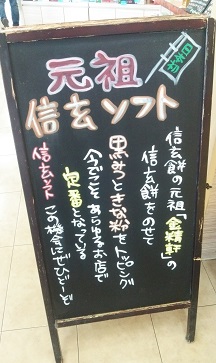 元祖
信玄ソフト
信玄餅の元祖「金精軒」の
信玄餅をのせて
黒みつときな粉をトッピング
今でこそあらゆるお店で
定番となっている
信玄ソフト この機会にぜひどーぞ